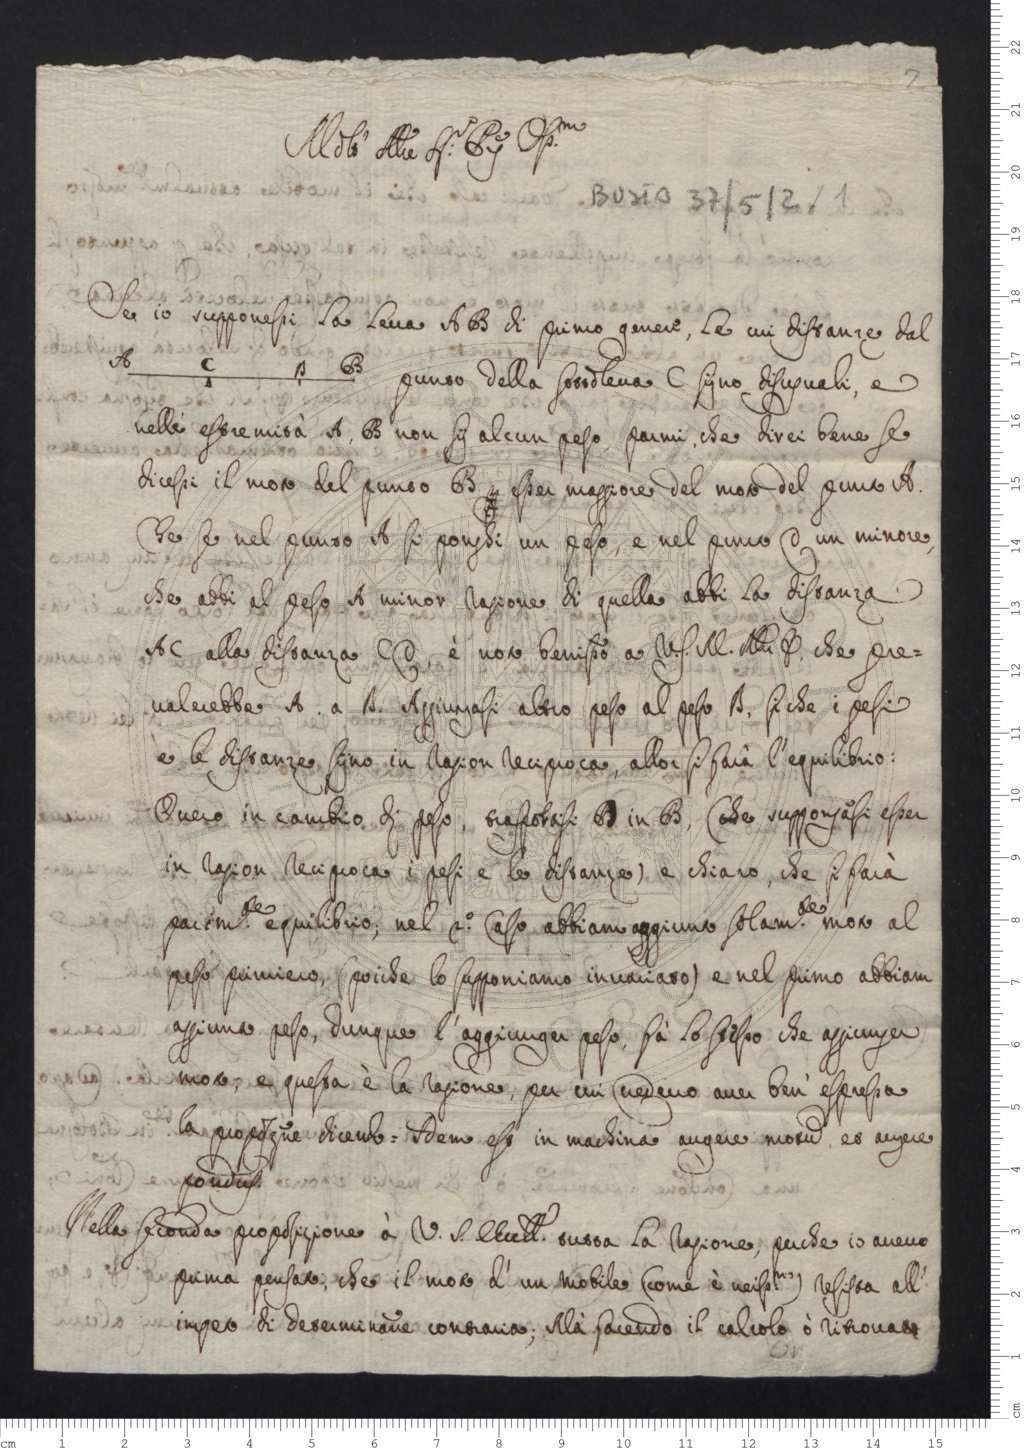 7
Molto Ill.re Sig.r
BUSTA 37/5/2/1
Se io supponessi la leua AB di primo genere, le cui distanze dal
A C D B
punto della sottoleua C sijno disuguali, e
nelle estremità A, B non sij alcun peso parmi, che direi bene se
dicessi il moto del punto B esser maggiore del moto del punto A.
Che se nel punto A si ponghi un peso, e nel punto D un minore,
che abbi al peso A minor ragione di quella abbi la distanza
AC alla distanza CD, è noto beniss.o a V.S. M. Ill.re che pre=
ualerebbe A a D. Aggiungasi altro peso al peso D, sì che i pesi
e le distanze sijno in ragion reciproca, allor si farà l'equilibrio:
Ouero in cambio di peso, trasportisi D in B, (che suppongasi esser
in ragion reciproca i pesi e le distanze) e chiaro, che si farà
parim.te equilibrio; nel 2.o caso abbiam aggiunto solam.te moto al
peso primiero, (poiche lo supponiamo inuariato) e nel primo abbiam
aggiunto peso, dunque l'aggiunger peso fà lo stesso che aggiunger
moto; e questa è la ragione, per cui credeuo auer ben' espressa
la propos.ne dicendo = Idem est in machina augere motũ et augere
pondus.
Nella seconda proposizione à V. S. Ecc.ma tutta la ragione, perche io aueuo
prima pensato, che il moto d' un mobile (come è ueriss.mo) resista all'
impeto di determinaz.ne contraria; Mà facendo il calcolo ò ritrouato